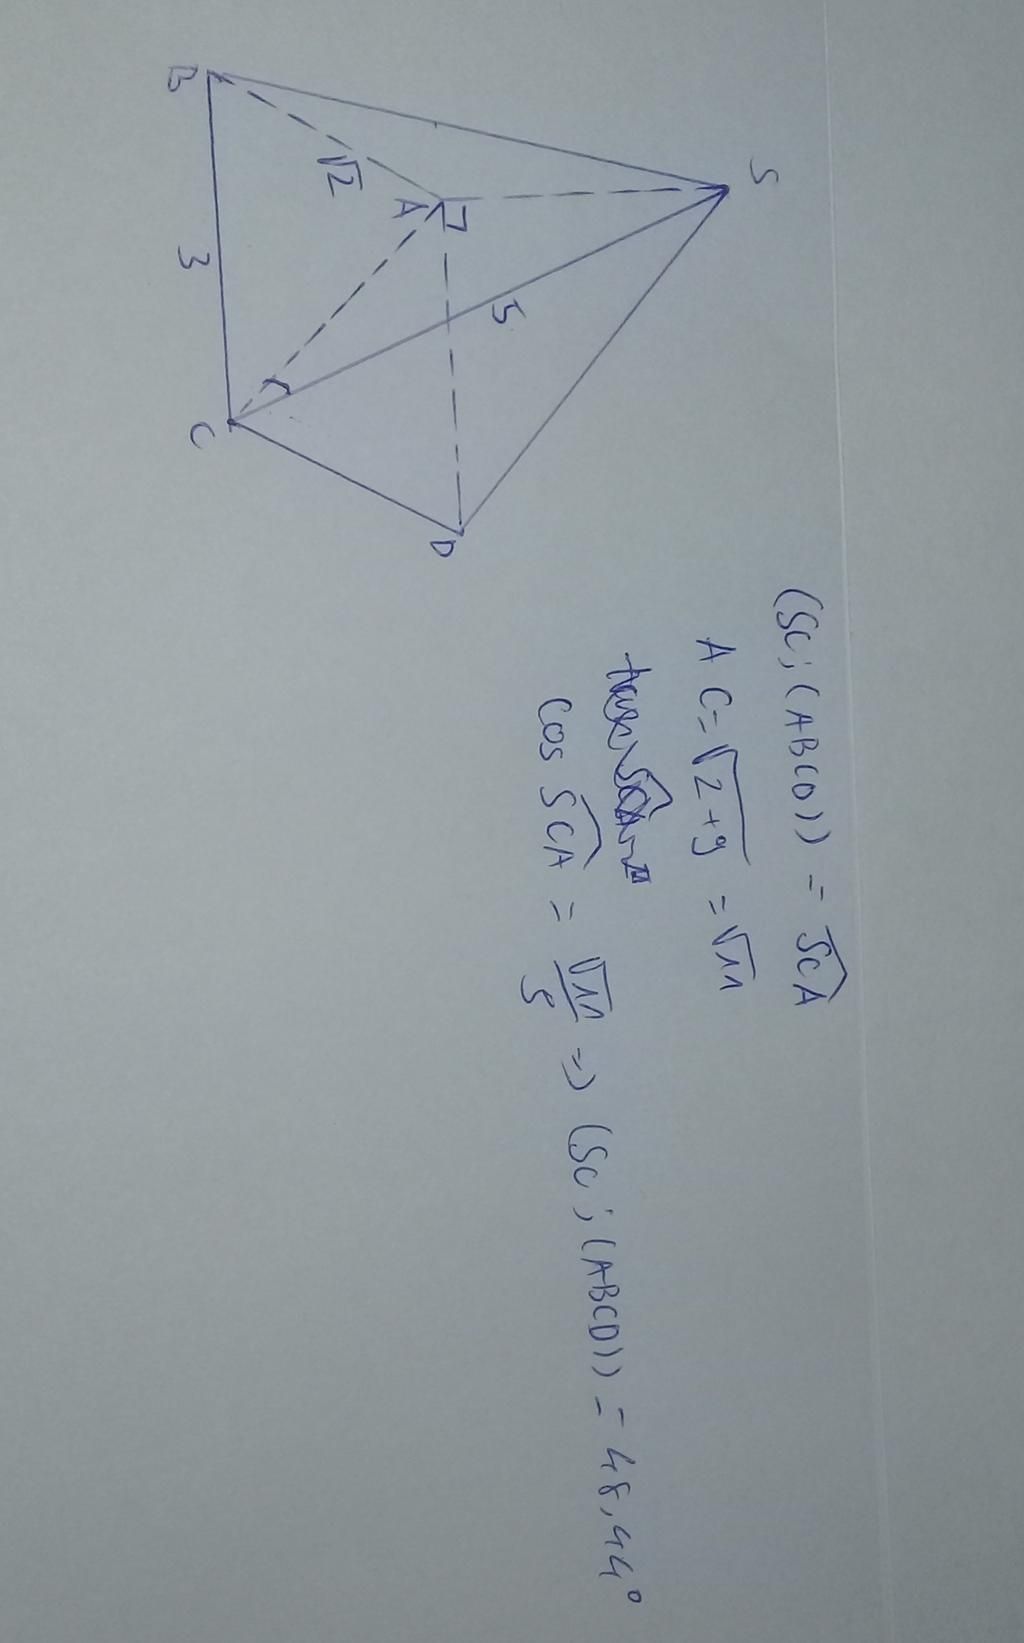 S
5
A
D
√2
B
3
C
(SC; (ABCD)) = SCA
AC = √2+9 = √11
cos SCA = √11/5 => (SC; (ABCD)) = 48,44°